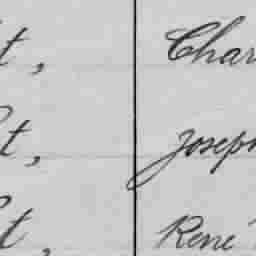 t, Char
t, Joseph
t, René